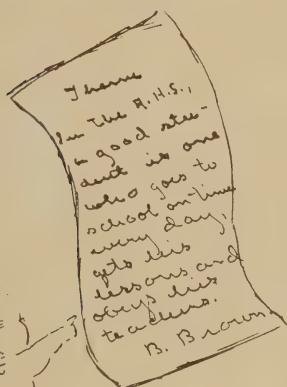 Theme
In the A.H.S.,
a good stu-
dent is one
who goes to
school on time
every day,
gets his
lessons and
obeys his
teachers.
B. Brown.